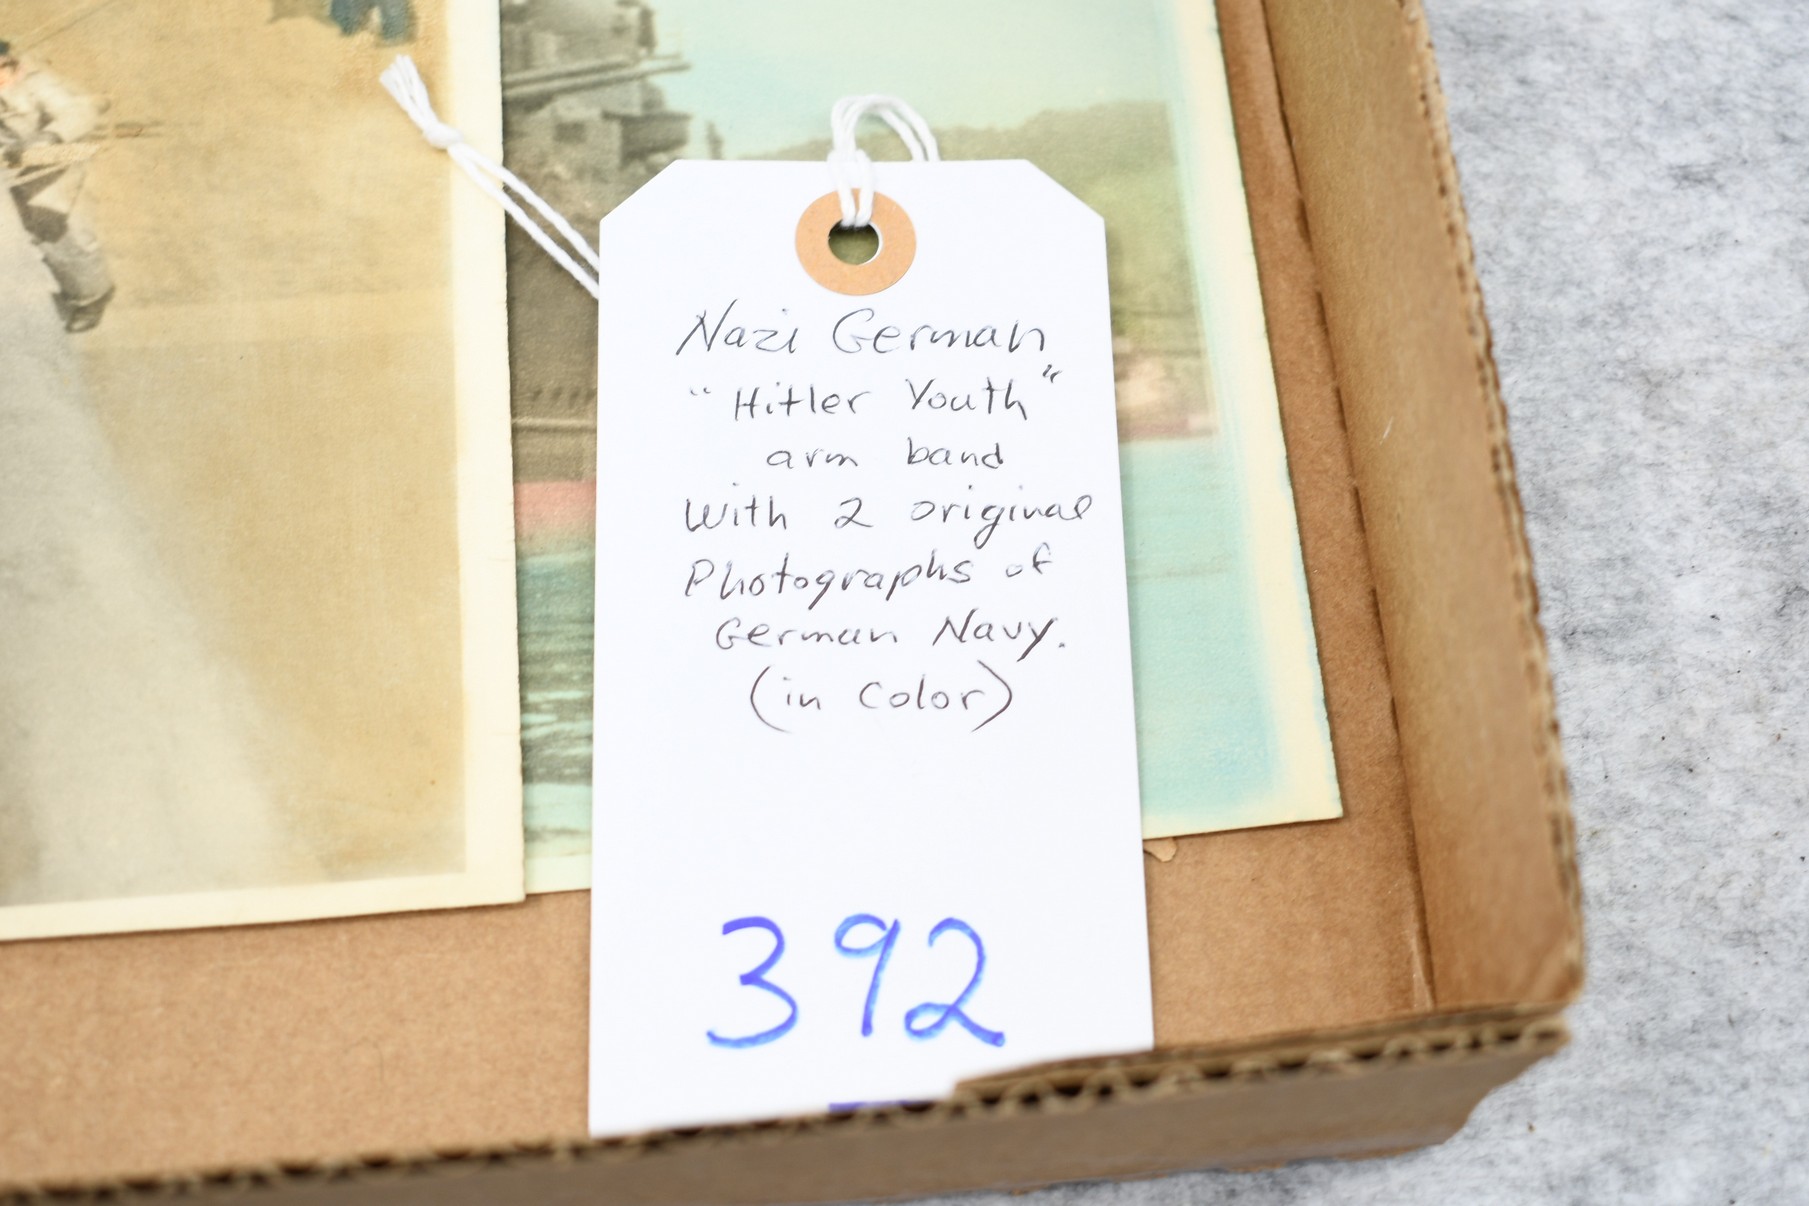 Nazi German
"Hitler Youth"
arm band
With 2 original
Photographs of
German Navy.
(in color)
392